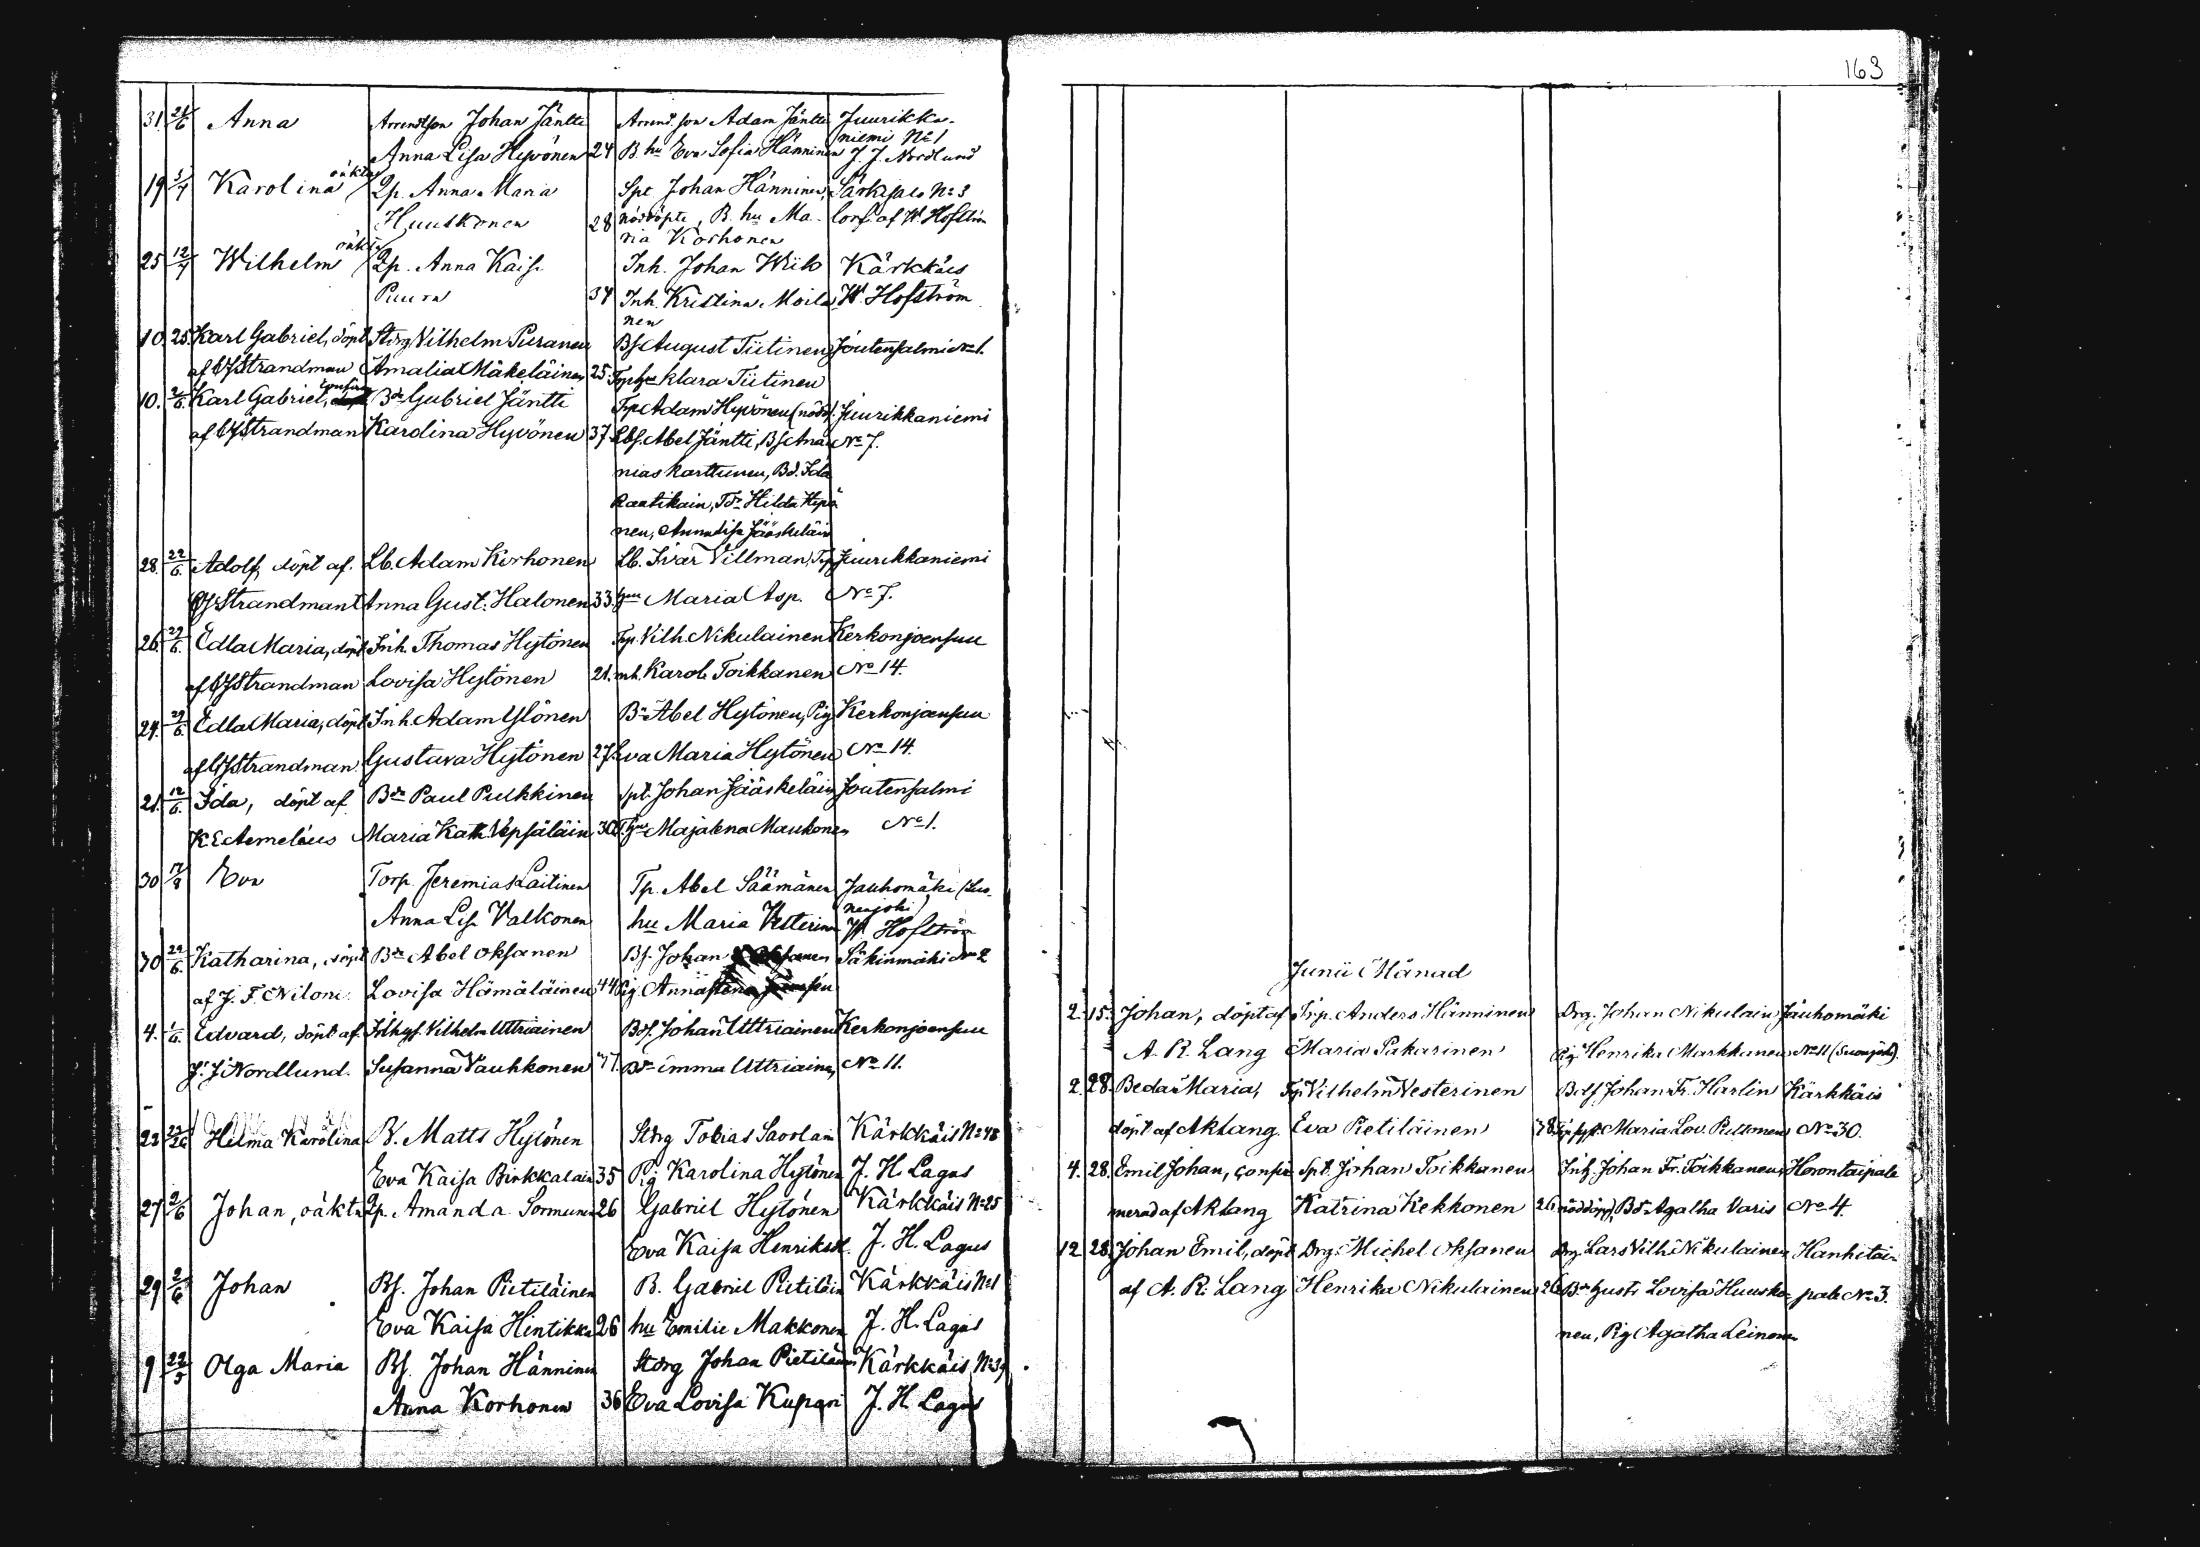 163
31. 21/6 Anna Arrendson Johan Jäntti Arrend. son Adam Jäntti Juurikka-
niemi No 1
Anna Lisa Hyvönen 24 B. hu Eva Sofia Hänninen J. J. Nordlund
19 5/7 Karolina oäkta Qp. Anna Maria Spt Johan Hänninen, Särkisalo No 3
Huuskonen 28 nöddöpte, B. hu Ma- conf. af W. Hofström
ria Korhonen
25 12/7 Wilhelm oäkta Qp. Anna Kaisa Inh. Johan Kärkkäis
Puura 34 Inh. Kristina Moila W. Hofström
nen
10. 25. Karl Gabriel, döpt Stdrg Vilhelm Puranen Bs August Tiitinen Joutensalmi No 1.
af Strandman Amalia Mäkeläinen 25 Tphu Klara Tiitinen
10. 2/6. Karl Gabriel, confirm Bd Gabriel Jäntti Trp Adam Hyvönen (nödd). Juurikkaniemi
af Strandman Karolina Hyvönen 37 Lbs. Abel Jäntti, Bs Ana- No 7.
nias Karttunen, Bd. Ida
Rautikain, Td Hilda Hyvö
nen, Annalisa Jääskeläin
28. 22/6. Adolf, döpt af. Lb. Adam Korhonen Lb. Ivar Villman, Trp Juurikkaniemi
Strandman Anna Gust. Halonen 33. hu Maria Asp. No 7.
26. 29/6. Edla Maria, döpt Inh. Thomas Hytönen Trp. Vilh Nikulainen Kerkonjoensuu
af Strandman Lovisa Hytönen 21. inh. Karol. Toikkanen No 14.
24. 29/6. Edla Maria, döpt Inh. Adam Ylönen Bd Abel Hytönen, Pig Kerkonjoensuu
af Strandman. Gustava Hytönen 27. Eva Maria Hytönen No 14.
21. 12/6. Ida, döpt af Bd Paul Pulkkinen Spt. Johan Jääskeläin Joutensalmi
K E Aemeläus Maria Kath. Vepsäläin 30. hu Majalena Maukonen No 1.
30 17/8 Eva Torp. Jeremias Laitinen Tp. Abel Säämänen Jauhomäki (Lus-
nenjoki)
Anna Lisa Valkonen hu Maria Vesterinen W. Hofström
30 22/6. Katharina, döpt Bd Abel Oksanen Bs. Johan Säkinmäki No 2
af J. F. Niloni. Lovisa Hämäläinen 44 Pig. Annastina
4. 1/6. Edvard, döpt af. Vilhelm Uttriainen Bds. Johan Uttriainen Kerkonjoensuu
J. J Nordlund. Susanna Vauhkonen Bd imma Uttriainen, No 11.
22 Helma Karolina B. Matts Hytönen Stdrg Tobias Savolain Kärkkäis No 48
Eva Kaisa Birkkalain 35 Pig Karolina Hytönen J. H. Lagus
27 2/6 Johan, oäkta Qp. Amanda Sormunen 26 Gabriel Hytönen Kärkkäis No 25
Eva Kaisa Henriksd. J. H. Lagus
29 2/6 Johan Bs. Johan Pietiläinen B. Gabriel Pietiläin Kärkkäis No 1
Eva Kaisa Hintikka 26 hu Emilie Makkonen J. H. Lagus
9 22/5 Olga Maria Bs. Johan Hänninen Stdrg Johan Pietiläinen Kärkkäis No 39
Anna Korhonen 36 Eva Lovisa Kupari J. H. Lagus
Junii Månad
2. 15. Johan, döpt af Trp. Anders Hänninen Drg. Johan Nikulain Jauhomäki
A. R. Lang Maria Pakarinen Pig Henrika Markkanen No 11 (Suonjoki).
2. 28. Beda Maria, Trp Vilhelm Vesterinen Bds Johan Fr. Harlin Kärkkäis
döpt af A R Lang. Eva Pietiläinen 38. Maria Lov. Pulkonen No 30.
4. 28. Emil Johan, confir Spt. Johan Toikkanen Inh. Johan Fr. Toikkanen Horontaipale
merad af A R Lang Katrina Kekkonen 26 nöddöp), Bd Agatha Varis No 4.
12 28. Johan Emil, döpt Drg. Michel Oksanen Drg. Lars Vilh. Nikulainen Hanhitai-
af A. R. Lang Henrika Nikulainen 26 Bd Gusts Lovisa Huusko- pale No 3.
nen, Pig Agatha Leinonen